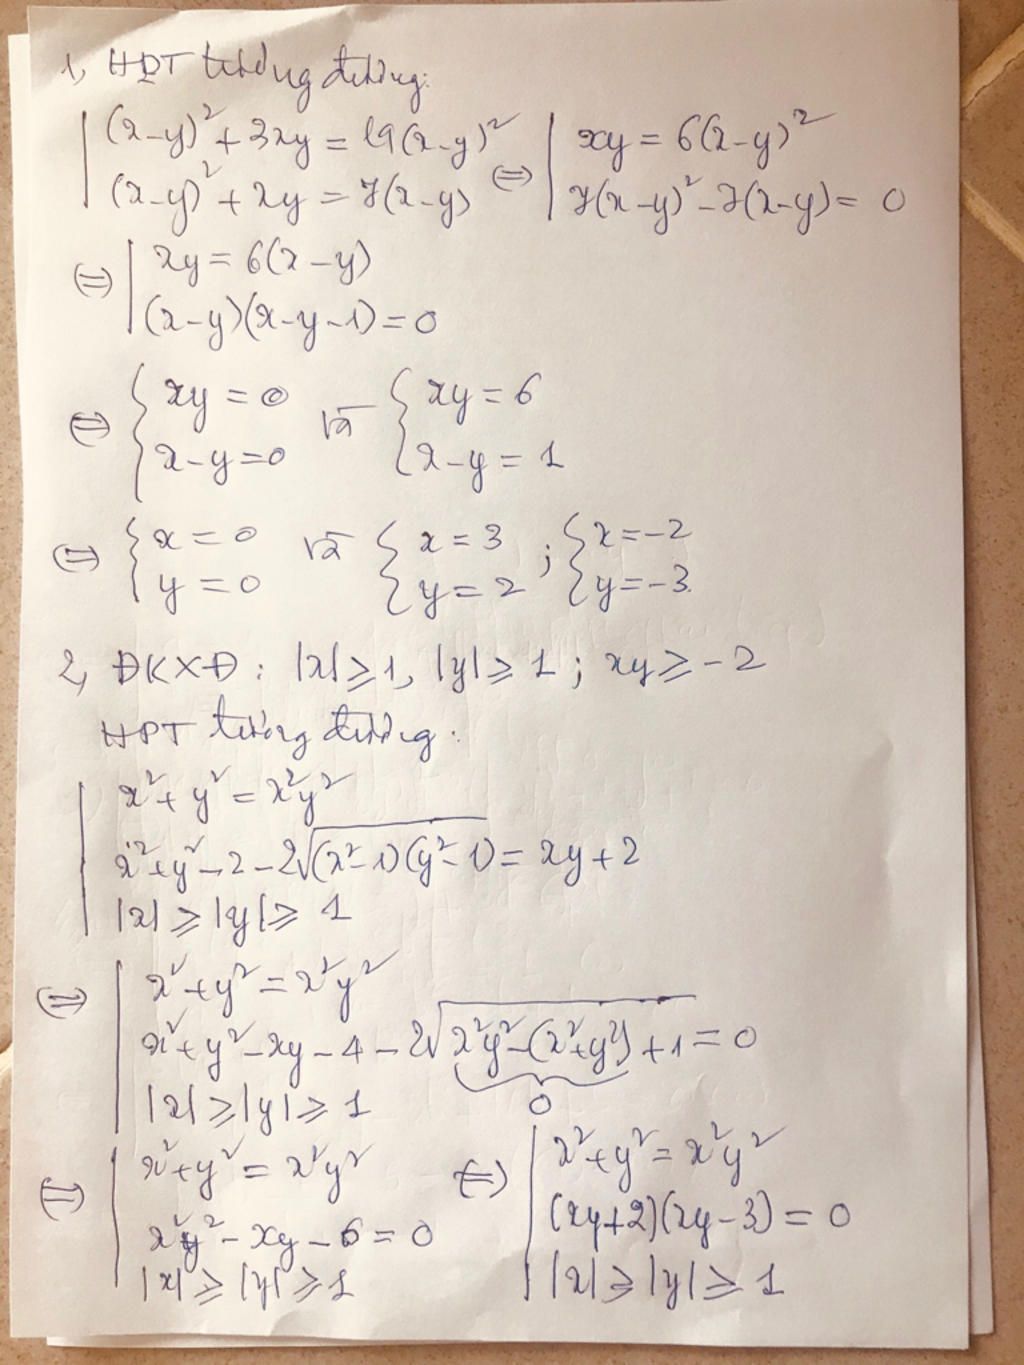 1, HPT tương đương:
(x-y)² + 3xy = 19(x-y)² ⇔ xy = 6(x-y)²
(x-y)² + xy = 7(x-y) 7(x-y)² - 7(x-y) = 0
⇔ xy = 6(x-y)
(x-y)(x-y-1) = 0
⇔ { xy = 0 và { xy = 6
x-y = 0 x-y = 1
⇔ { x = 0 và { x = 3 ; { x = -2
y = 0 y = 2 y = -3.
2, ĐKXĐ: |x| ⩾ 1, |y| ⩾ 1; xy ⩾ -2
HPT tương đương:
x² + y² = x²y²
x² + y² - 2 - 2√((x²-1)(y²-1)) = xy + 2
|x| ⩾ |y| ⩾ 1
⇔ x² + y² = x²y²
x² + y² - xy - 4 - 2√(x²y² - (x²+y²) + 1) = 0
|x| ⩾ |y| ⩾ 1 0
⇔ x² + y² = x²y² ⇔ x² + y² = x²y²
x²y² - xy - 6 = 0 (xy+2)(xy-3) = 0
|x| ⩾ |y| ⩾ 1 |x| ⩾ |y| ⩾ 1